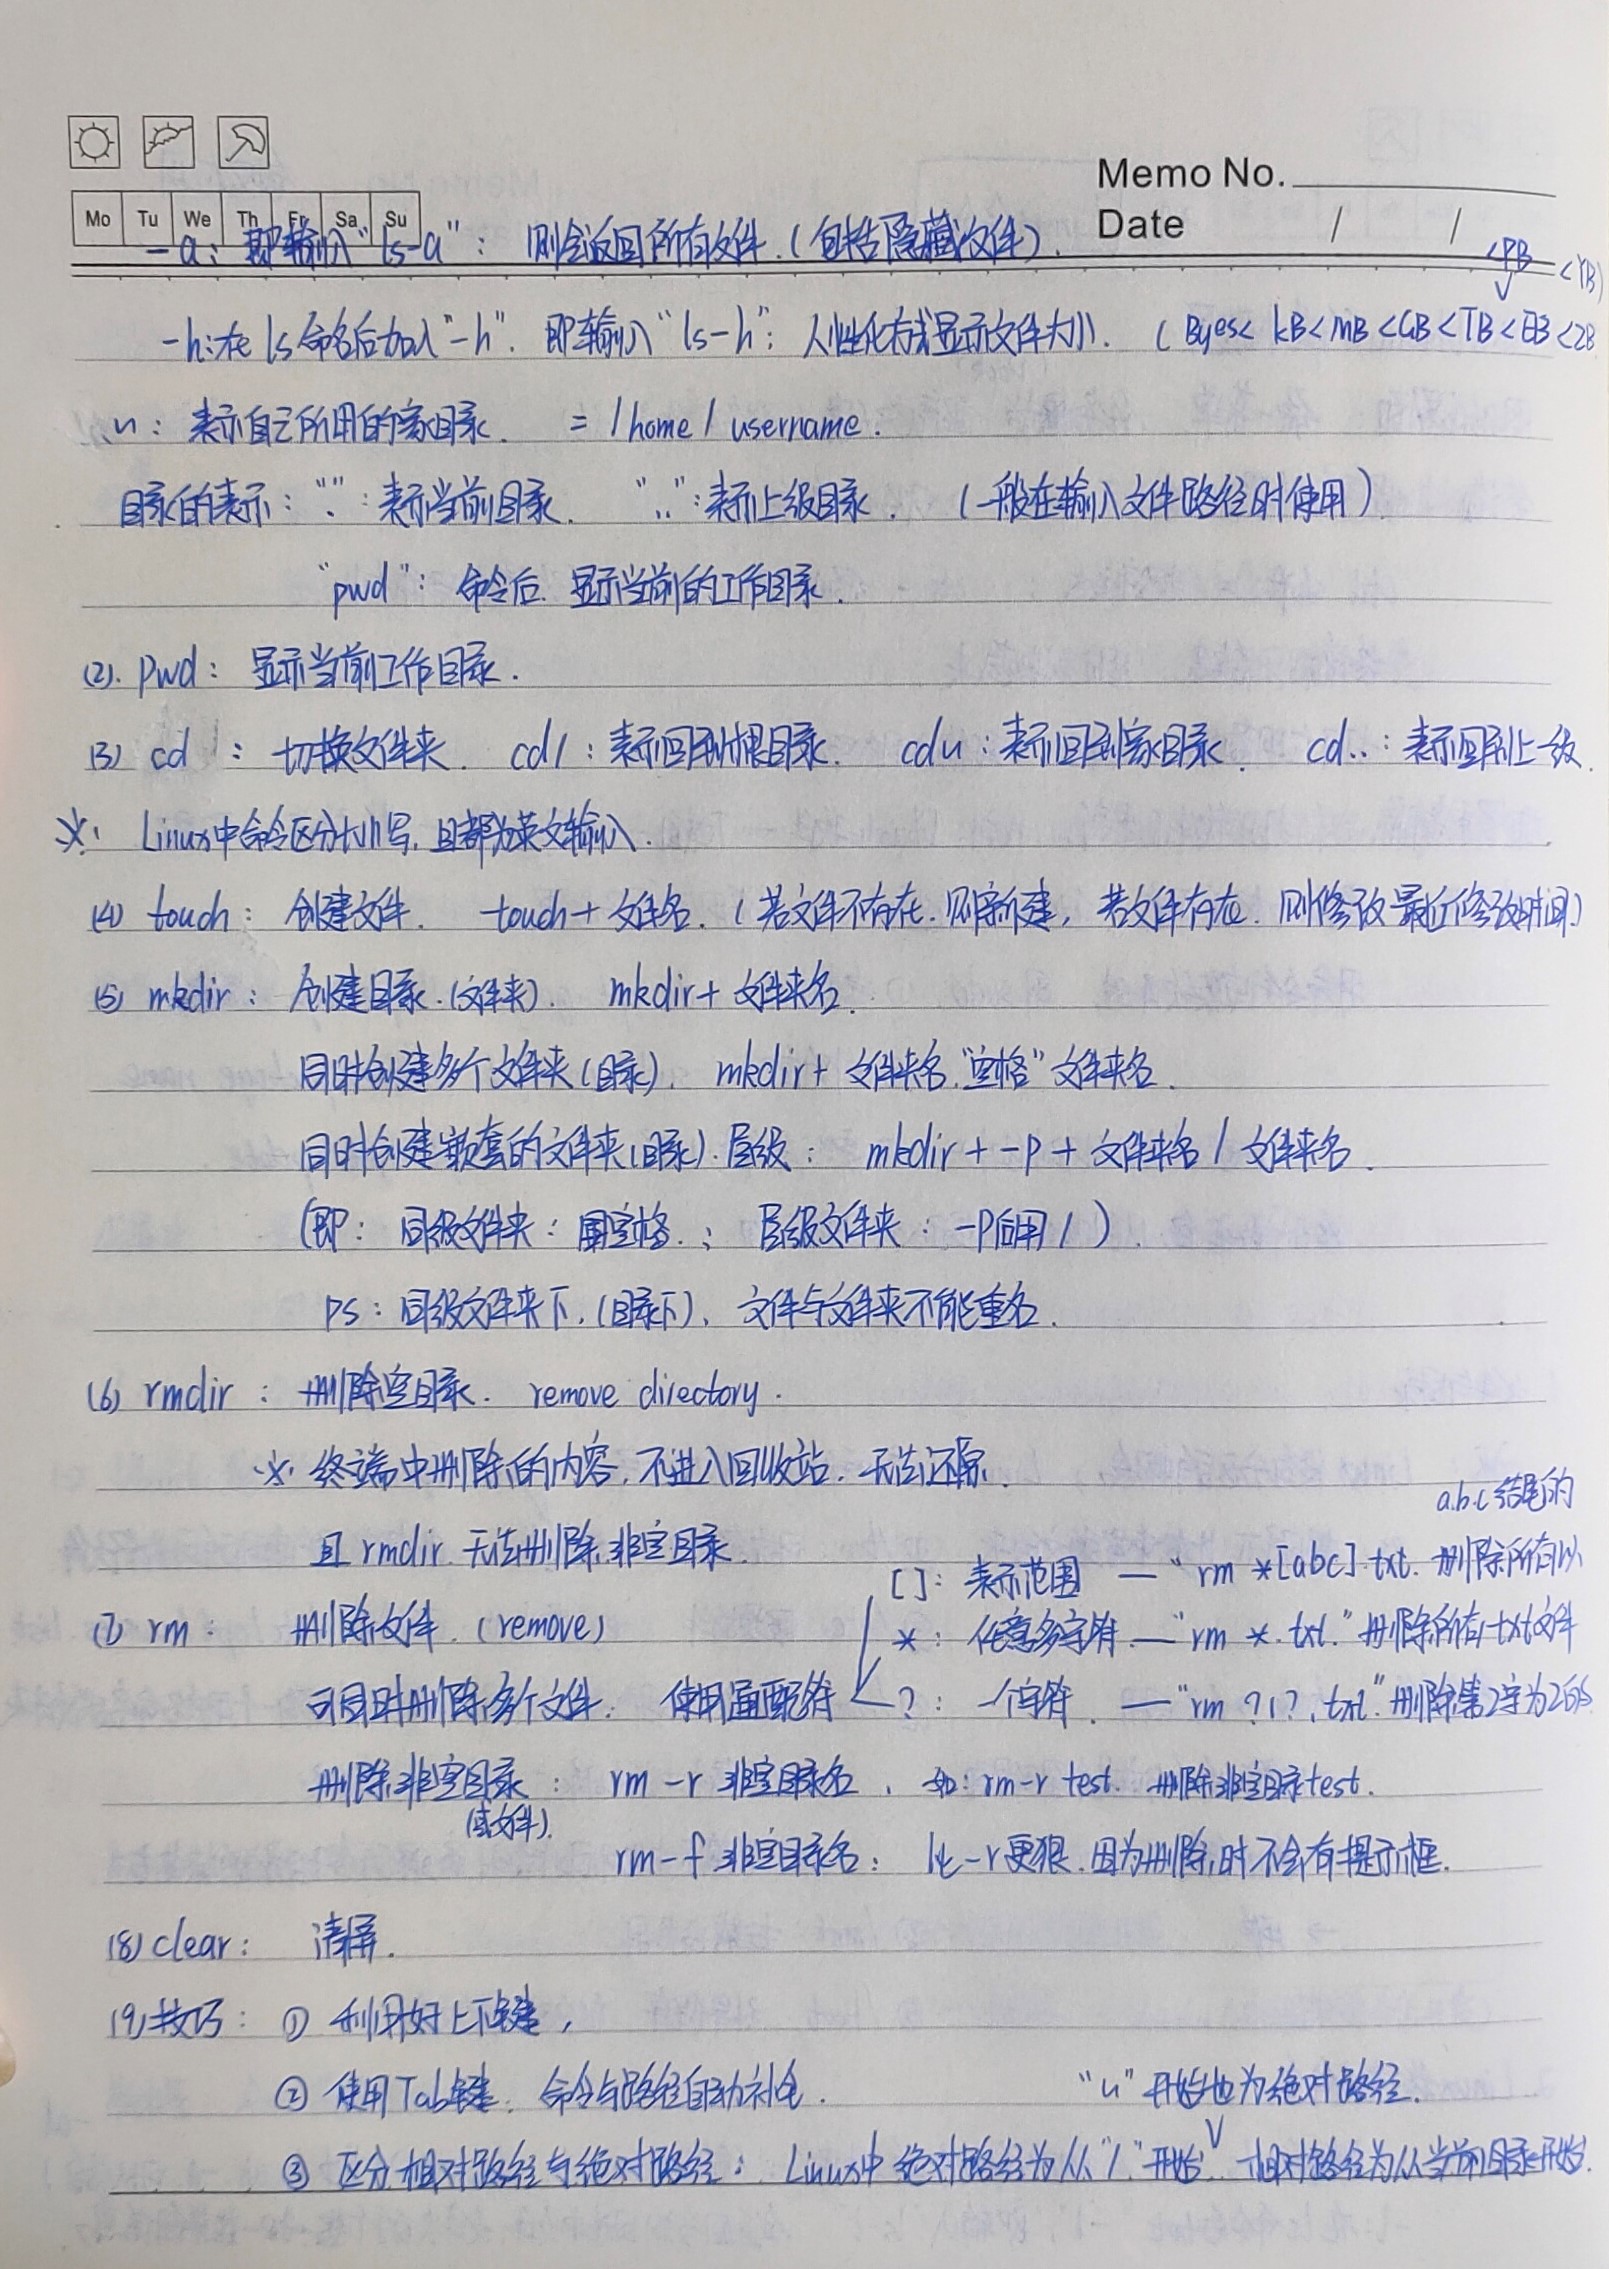 Memo No.
Mo Tu We Th Fr Sa Su
Date / /
-a: 即输入“ls-a”: 则会返回所有文件.(包括隐藏文件).
<PB
<YB)
-h:在ls命名后加入“-h”. 即输入“ls-h”: 人性化方式显示文件大小. (Byes< kB<mB<GB<TB<EB<ZB
~: 表示自己所用的家目录. = /home/username.
目录的表示: “.”:表示当前目录. “..”:表示上级目录. (一般在输入文件路径时使用)
“pwd”: 命令后. 显示当前的工作目录.
(2). pwd: 显示当前工作目录.
(3) cd : 切换文件夹. cd/:表示回到根目录. cd~:表示回到家目录. cd..:表示回到上一级.
※. Linux中命令区分大小写, 且都为英文输入.
(4) touch: 创建文件. touch+文件名. (若文件不存在.则新建, 若文件存在. 则修改最近修改时间)
(5) mkdir: 创建目录.(文件夹). mkdir+文件夹名.
同时创建多个文件夹(目录). mkdir+ 文件夹名.“空格”文件夹名.
同时创建嵌套的文件夹(目录).层级: mkdir + -p + 文件夹名 / 文件夹名.
(即: 同级文件夹: 用空格.; 层级文件夹: -p后用/).
PS:同级文件夹下.(目录下). 文件与文件夹不能重名.
(6) rmdir: 删除空目录. remove directory.
※. 终端中删除的内容,不进入回收站.无法还原.
且 rmdir 无法删除非空目录.
a.b.c结尾的
[]: 表示范围 — “rm *[abc].txt. 删除所有以
(7) rm: 删除文件.(remove)
*: 任意多字符.—“rm *.txt.”删除所有txt文件
可同时删除多个文件: 使用通配符
?: 一个字符. —“rm ?1?.txt.”删除第2字为1的
删除非空目录: rm -r 非空目录名. 如: rm-r test. 删除非空目录test.
(或文件).
rm-f 非空目录名: 比-r更狠.因为删除时不会有提示框.
(8) clear: 清屏.
(9) 技巧: ① 利用好上下键,
② 使用Tab键. 命令与路径自动补全.
“~”开始也为绝对路径.
③ 区分相对路径与绝对路径: Linux中 绝对路径为从“/”开始 相对路径为从当前目录开始.